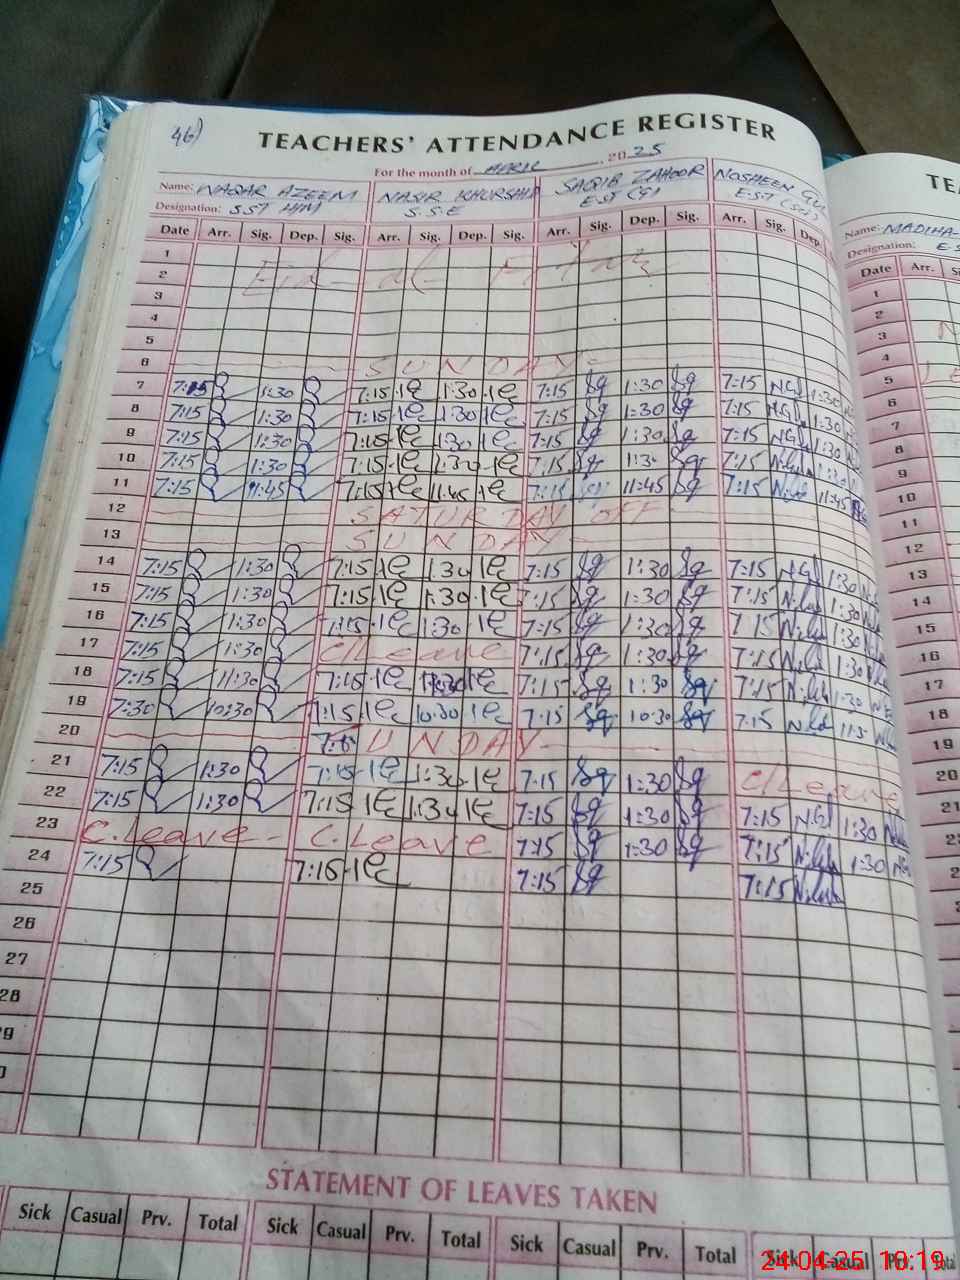 46)
TEACHERS' ATTENDANCE REGISTER
For the month of APRIL, 2025
Name: WAQAR AZEEM NASIR KHURSHID SAQIB ZAHOOR NOSHEEN
Designation: SST H/M S.S.E EST (G) E.S.T (Sci)
Date Arr. Sig. Dep. Sig. Arr. Sig. Dep. Sig. Arr. Sig. Dep. Sig. Arr. Sig. Dep.
1 Eid-ul-Fitar
2
3
4
5
6 SUNDAY
7 7:15 1:30 7:15 1:30 7:15 1:30 7:15 1:30
8 7:15 1:30 7:15 1:30 7:15 1:30 7:15 1:30
9 7:15 1:30 7:15 1:30 7:15 1:30 7:15 1:30
10 7:15 1:30 7:15 1:30 7:15 1:30 7:15 1:30
11 7:15 11:45 7:15 11:45 7:15 11:45 7:15 11:45
12 SATURDAY OFF
13 SUNDAY
14 7:15 1:30 7:15 1:30 7:15 1:30 7:15 1:30
15 7:15 1:30 7:15 1:30 7:15 1:30 7:15 1:30
16 7:15 1:30 7:15 1:30 7:15 1:30 7:15 1:30
17 7:15 1:30 C/Leave 7:15 1:30 7:15 1:30
18 7:15 11:30 7:15 7:15 1:30 7:15 1:30
19 7:30 10:30 7:15 10:30 7:15 10:30 7:15
20 SUNDAY
21 7:15 1:30 7:15 1:30 7:15 1:30 C/Leave
22 7:15 1:30 7:15 1:30 7:15 1:30 7:15 1:30
23 C.Leave C.Leave 7:15 1:30 7:15 1:30
24 7:15 7:15 7:15 7:15
25
26
27
28
STATEMENT OF LEAVES TAKEN
Sick Casual Prv. Total Sick Casual Prv. Total Sick Casual Prv. Total Sick Casual Prv.
Name: MADIHA
Designation:
Date Arr.
1
2
3
4
5
6
7
8
9
10
11
12
13
14
15
16
17
18
19
20
21
24-04-25 10:19